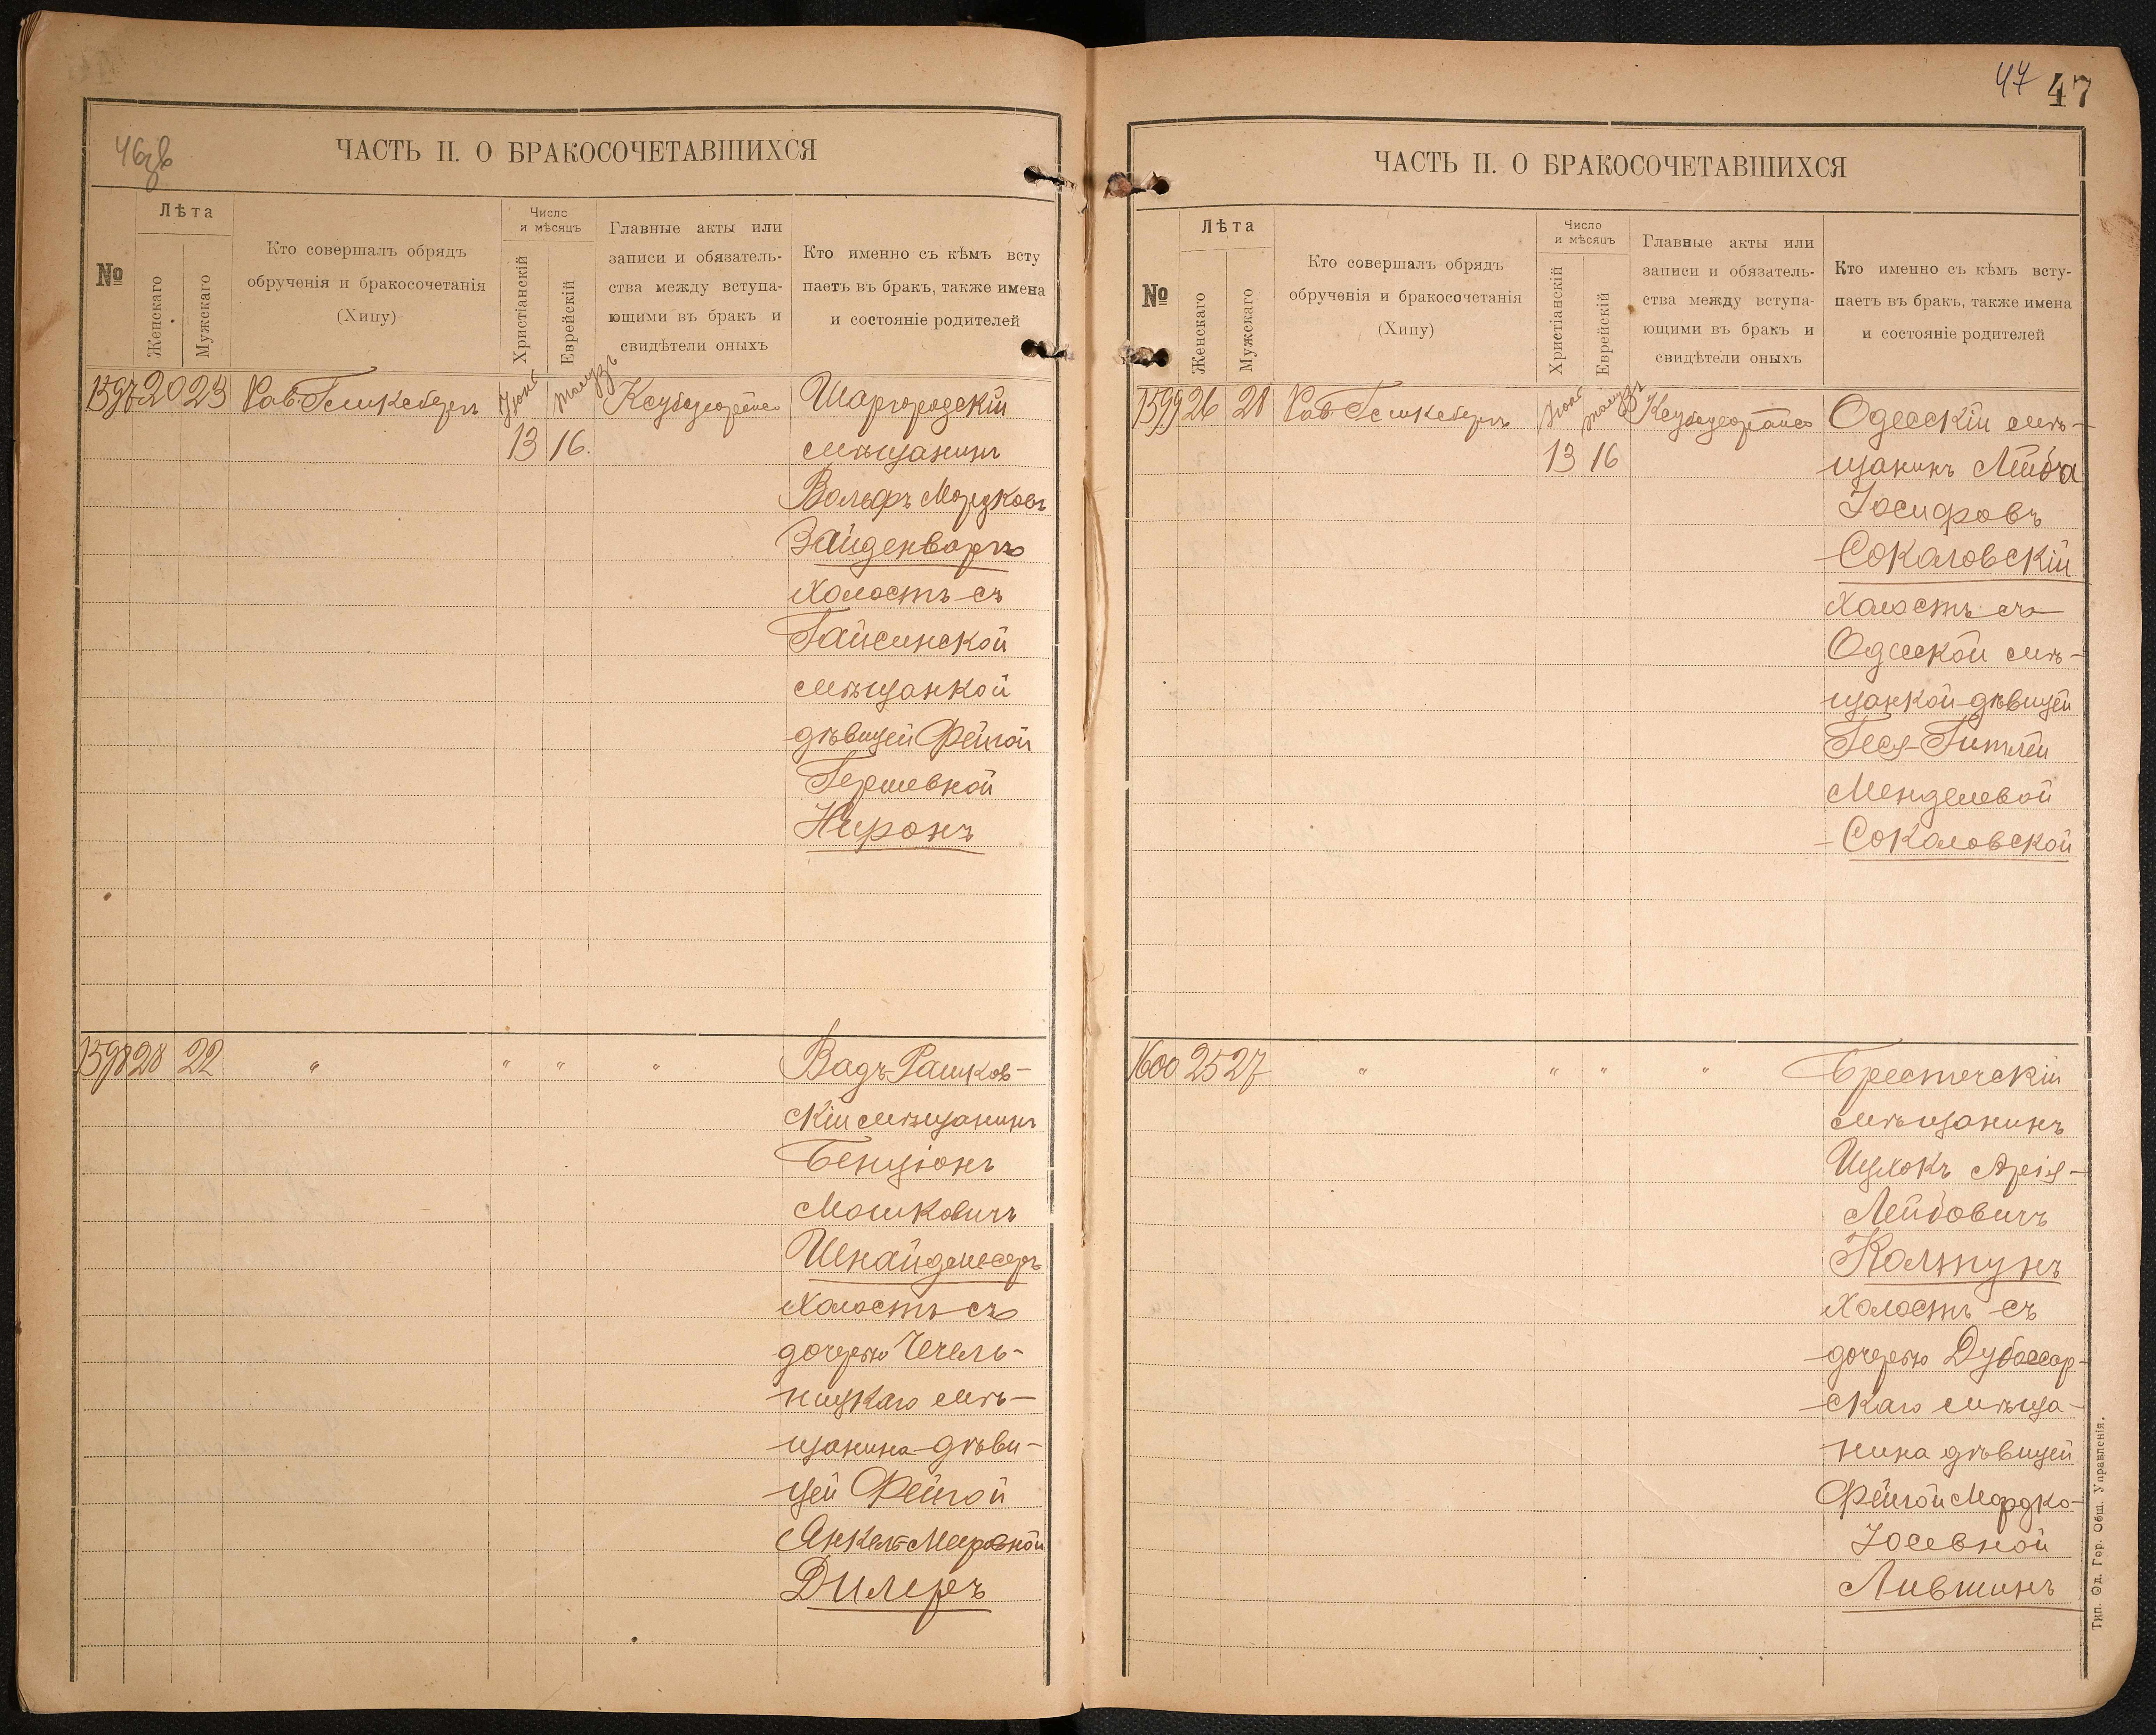 46об
ЧАСТЬ II. О БРАКОСОЧЕТАВШИХСЯ
№
Лѣта
Женскаго
Мужскаго
Кто совершалъ обрядъ
обрученія и бракосочетанія
(Хипу)
Число
и мѣсяцъ
Христіанскій
Еврейскій
Главные акты или
записи и обязатель-
ства между вступа-
ющими въ бракъ и
свидѣтели оныхъ
Кто именно съ кѣмъ всту
паетъ въ бракъ, также имена
и состояніе родителей
1597 20 23 Рав. Гемкебергъ
13 16.
Шаргородскій
мѣщанинъ
Вольфъ Мордковъ
Зайденворгъ
холостъ съ
Гайсинской
мѣщанкой
дѣвицей Фейгой
Гершевной
Ниронъ
1598 28 22 " " " " Вадъ-Рашков-
скій мѣщанинъ
Бенціонъ
Мошковичъ
Шнайдмесеръ
холостъ съ
дочерью Чечель-
ницкаго мѣ-
щанина дѣви-
цей Фейгой
Янкель-Мееровной
Дилеръ
47 47
ЧАСТЬ II. О БРАКОСОЧЕТАВШИХСЯ
№
Лѣта
Женскаго
Мужскаго
Кто совершалъ обрядъ
обрученія и бракосочетанія
(Хипу)
Число
и мѣсяцъ
Христіанскій
Еврейскій
Главные акты или
записи и обязатель-
ства между вступа-
ющими въ бракъ и
свидѣтели оныхъ
Кто именно съ кѣмъ всту-
паетъ въ бракъ, также имена
и состояніе родителей
1599 26 28 Рав. Гемкебергъ
13 16
Одесскій мѣ-
щанинъ Лейба
Іосифовъ
Соколовскій
холостъ съ
Одесской мѣ-
щанкой дѣвицей
Геся-Гитлей
Менделевой
Соколовской
1600 25 27 " " " " Брестечскій
мѣщанинъ
Ицхокъ Арія-
Лейбовичъ
Колтунъ
холостъ съ
дочерью Дубоссар-
скаго мѣща-
нина дѣвицей
Фейгой Мордко-
Іосевной
Лившинъ
Тип. Од. Гор. Общ. Управленія.